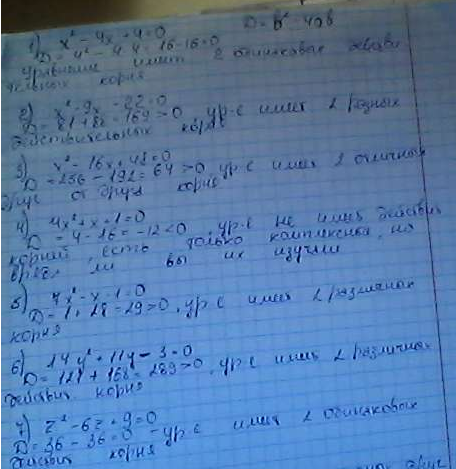 1) x² - 4x + 4 = 0 D = b² - 4ab
D = 4² - 4·4 = 16 - 16 = 0
уравнение имеет 2 одинаковые действи
тельных корня
2) x² - 9x - 22 = 0
D = 81 + 88 = 169 > 0, ур-е имеет 2 разных
действительных корня
3) x² - 16x + 48 = 0
D = 256 - 192 = 64 > 0, ур-е имеет 2 отличных
друг от друга корня
4) 4x² + x + 1 = 0
D = 4 - 16 = -12 < 0, ур-е не имеет действит
корней, есть только комплексные, но
вряд ли вы их изучали
5) 7x² - x - 1 = 0
D = 1 + 28 = 29 > 0, ур-е имеет 2 различных
корня
6) 14y² + 11y - 3 = 0
D = 121 + 168 = 289 > 0, ур-е имеет 2 различных
действит корня
7) z² - 6z + 9 = 0
D = 36 - 36 = 0 - ур-е имеет 2 одинаковых
действит корня